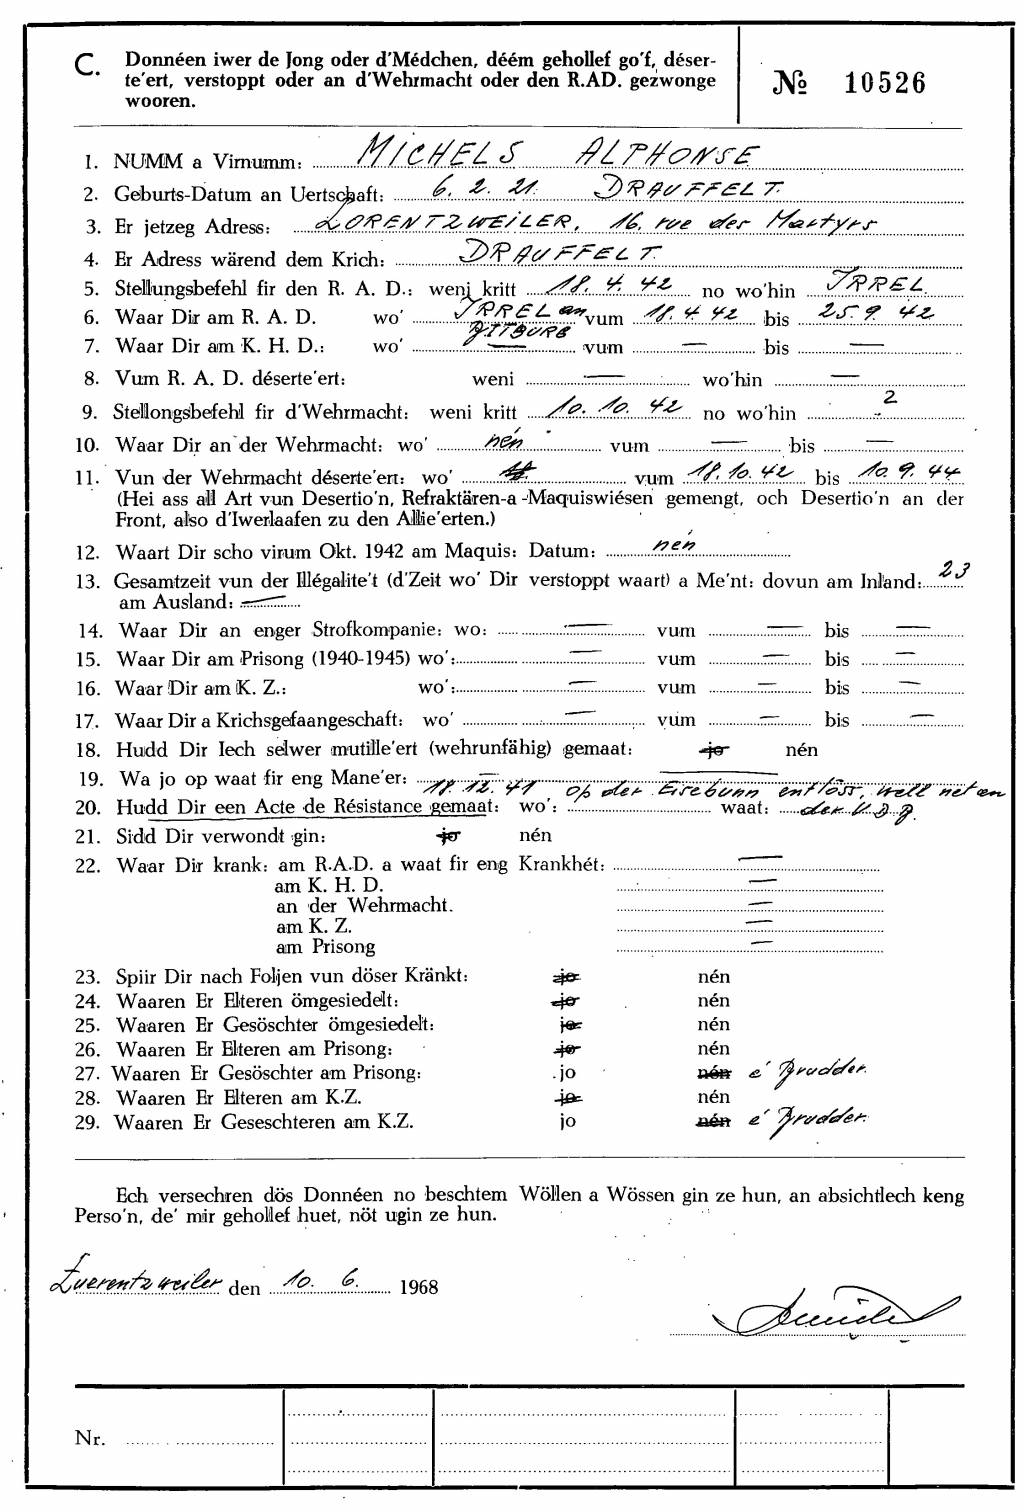 C. Donnéen iwer de Jong oder d'Médchen, déém gehollef go'f, déser-
te'ert, verstoppt oder an d'Wehrmacht oder den R.AD. gezwonge
wooren.
№ 10526
1. NUMM a Virnumm: MICHELS ALPHONSE
2. Geburts-Datum an Uertschaft: 6. 2. 21. DRAUFFELT.
3. Er jetzeg Adress: LORENTZWEILER, 16. rue des Martyrs
4. Er Adress wärend dem Krich: DRAUFFELT.
5. Stellungsbefehl fir den R. A. D.: weni kritt 18. 4. 42 no wo'hin IRREL.
6. Waar Dir am R. A. D. wo' IRREL an BITBURG vum 18. 4. 42 bis 25. 9. 42
7. Waar Dir am K. H. D.: wo' — vum — bis —
8. Vum R. A. D. déserte'ert: weni — wo'hin —
9. Stellongsbefehl fir d'Wehrmacht: weni kritt 10. 10. 42 no wo'hin ?
10. Waar Dir an der Wehrmacht: wo' nén vum — bis —
11. Vun der Wehrmacht déserte'ert: wo' vum 18. 10. 42 bis 10. 9. 44.
(Hei ass all Art vun Desertio'n, Refraktären-a -Maquiswiésen gemengt, och Desertio'n an der
Front, also d'Iwerlaafen zu den Allie'erten.)
12. Waart Dir scho virum Okt. 1942 am Maquis: Datum: nén
13. Gesamtzeit vun der Illégalite't (d'Zeit wo' Dir verstoppt waart) a Me'nt: dovun am Inland: 23
am Ausland: —
14. Waar Dir an enger Strofkompanie: wo: — vum — bis —
15. Waar Dir am Prisong (1940-1945) wo': — vum — bis —
16. Waar Dir am K. Z.: wo': — vum — bis —
17. Waar Dir a Krichsgefaangeschaft: wo' — vum — bis —
18. Hudd Dir Iech selwer mutille'ert (wehrunfähig) gemaat: jo nén
19. Wa jo op waat fir eng Mane'er: — —
18. 12. 41 op der Eisebunn entlöss, well net an
20. Hudd Dir een Acte de Résistance gemaat: wo': waat: der V.D.B.
21. Sidd Dir verwondt gin: jo nén
22. Waar Dir krank: am R.A.D. a waat fir eng Krankhét: —
am K. H. D. —
an der Wehrmacht. —
am K. Z. —
am Prisong —
23. Spiir Dir nach Foljen vun döser Kränkt: jo nén
24. Waaren Er Elteren ömgesiedelt: jo nén
25. Waaren Er Gesöschter ömgesiedelt: jo nén
26. Waaren Er Elteren am Prisong: jo nén
27. Waaren Er Gesöschter am Prisong: jo nén e' Brudder.
28. Waaren Er Elteren am K.Z. jo nén
29. Waaren Er Geseschteren am K.Z. jo nén e' Brudder.
Ech versechren dös Donnéen no beschtem Wöllen a Wössen gin ze hun, an absichtlech keng
Perso'n, de' mir gehollef huet, nöt ugin ze hun.
Luerentzweiler den 10. 6. 1968
Nr.